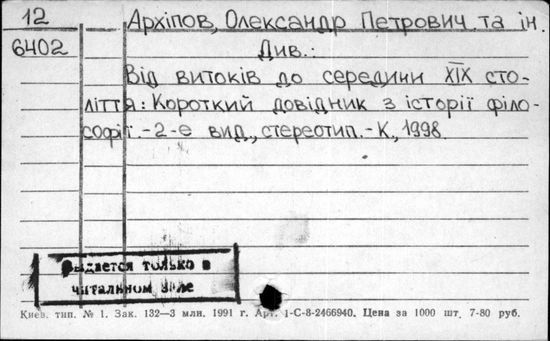 12
6402
Архіпов, Олександр Петрович та ін.
Див.:
Від витоків до середини XIX сто-
ліття: Короткий довідник з історії філо-
софії. - 2-е вид., стереотип. - К., 1998.
Выдается только в
читальном зале
Киев. тип. № 1. Зак. 132—3 млн. 1991 г. Арт. 1-С-8-2466940. Цена за 1000 шт. 7-80 руб.